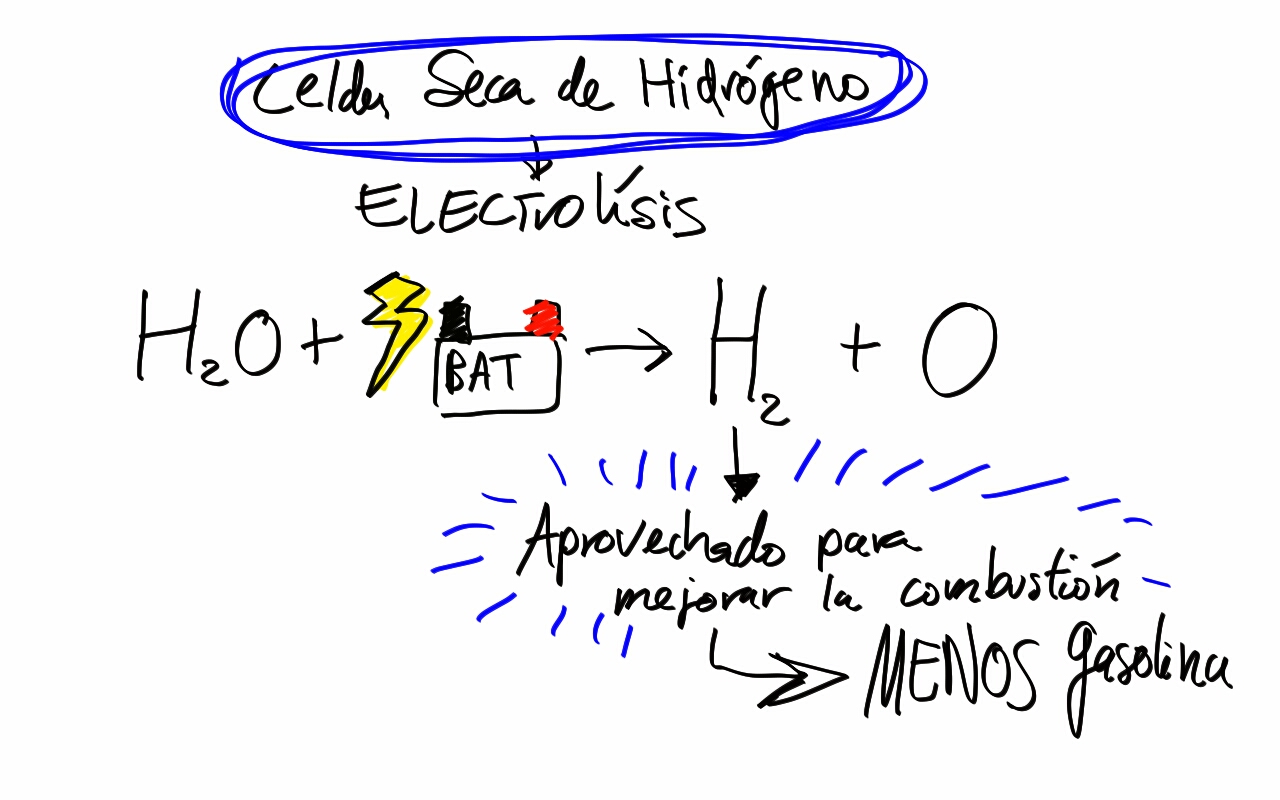 Celda Seca de Hidrógeno
ELECTROlísis
H₂O + BAT → H₂ + O
Aprovechado para
mejorar la combustión
MENOS gasolina